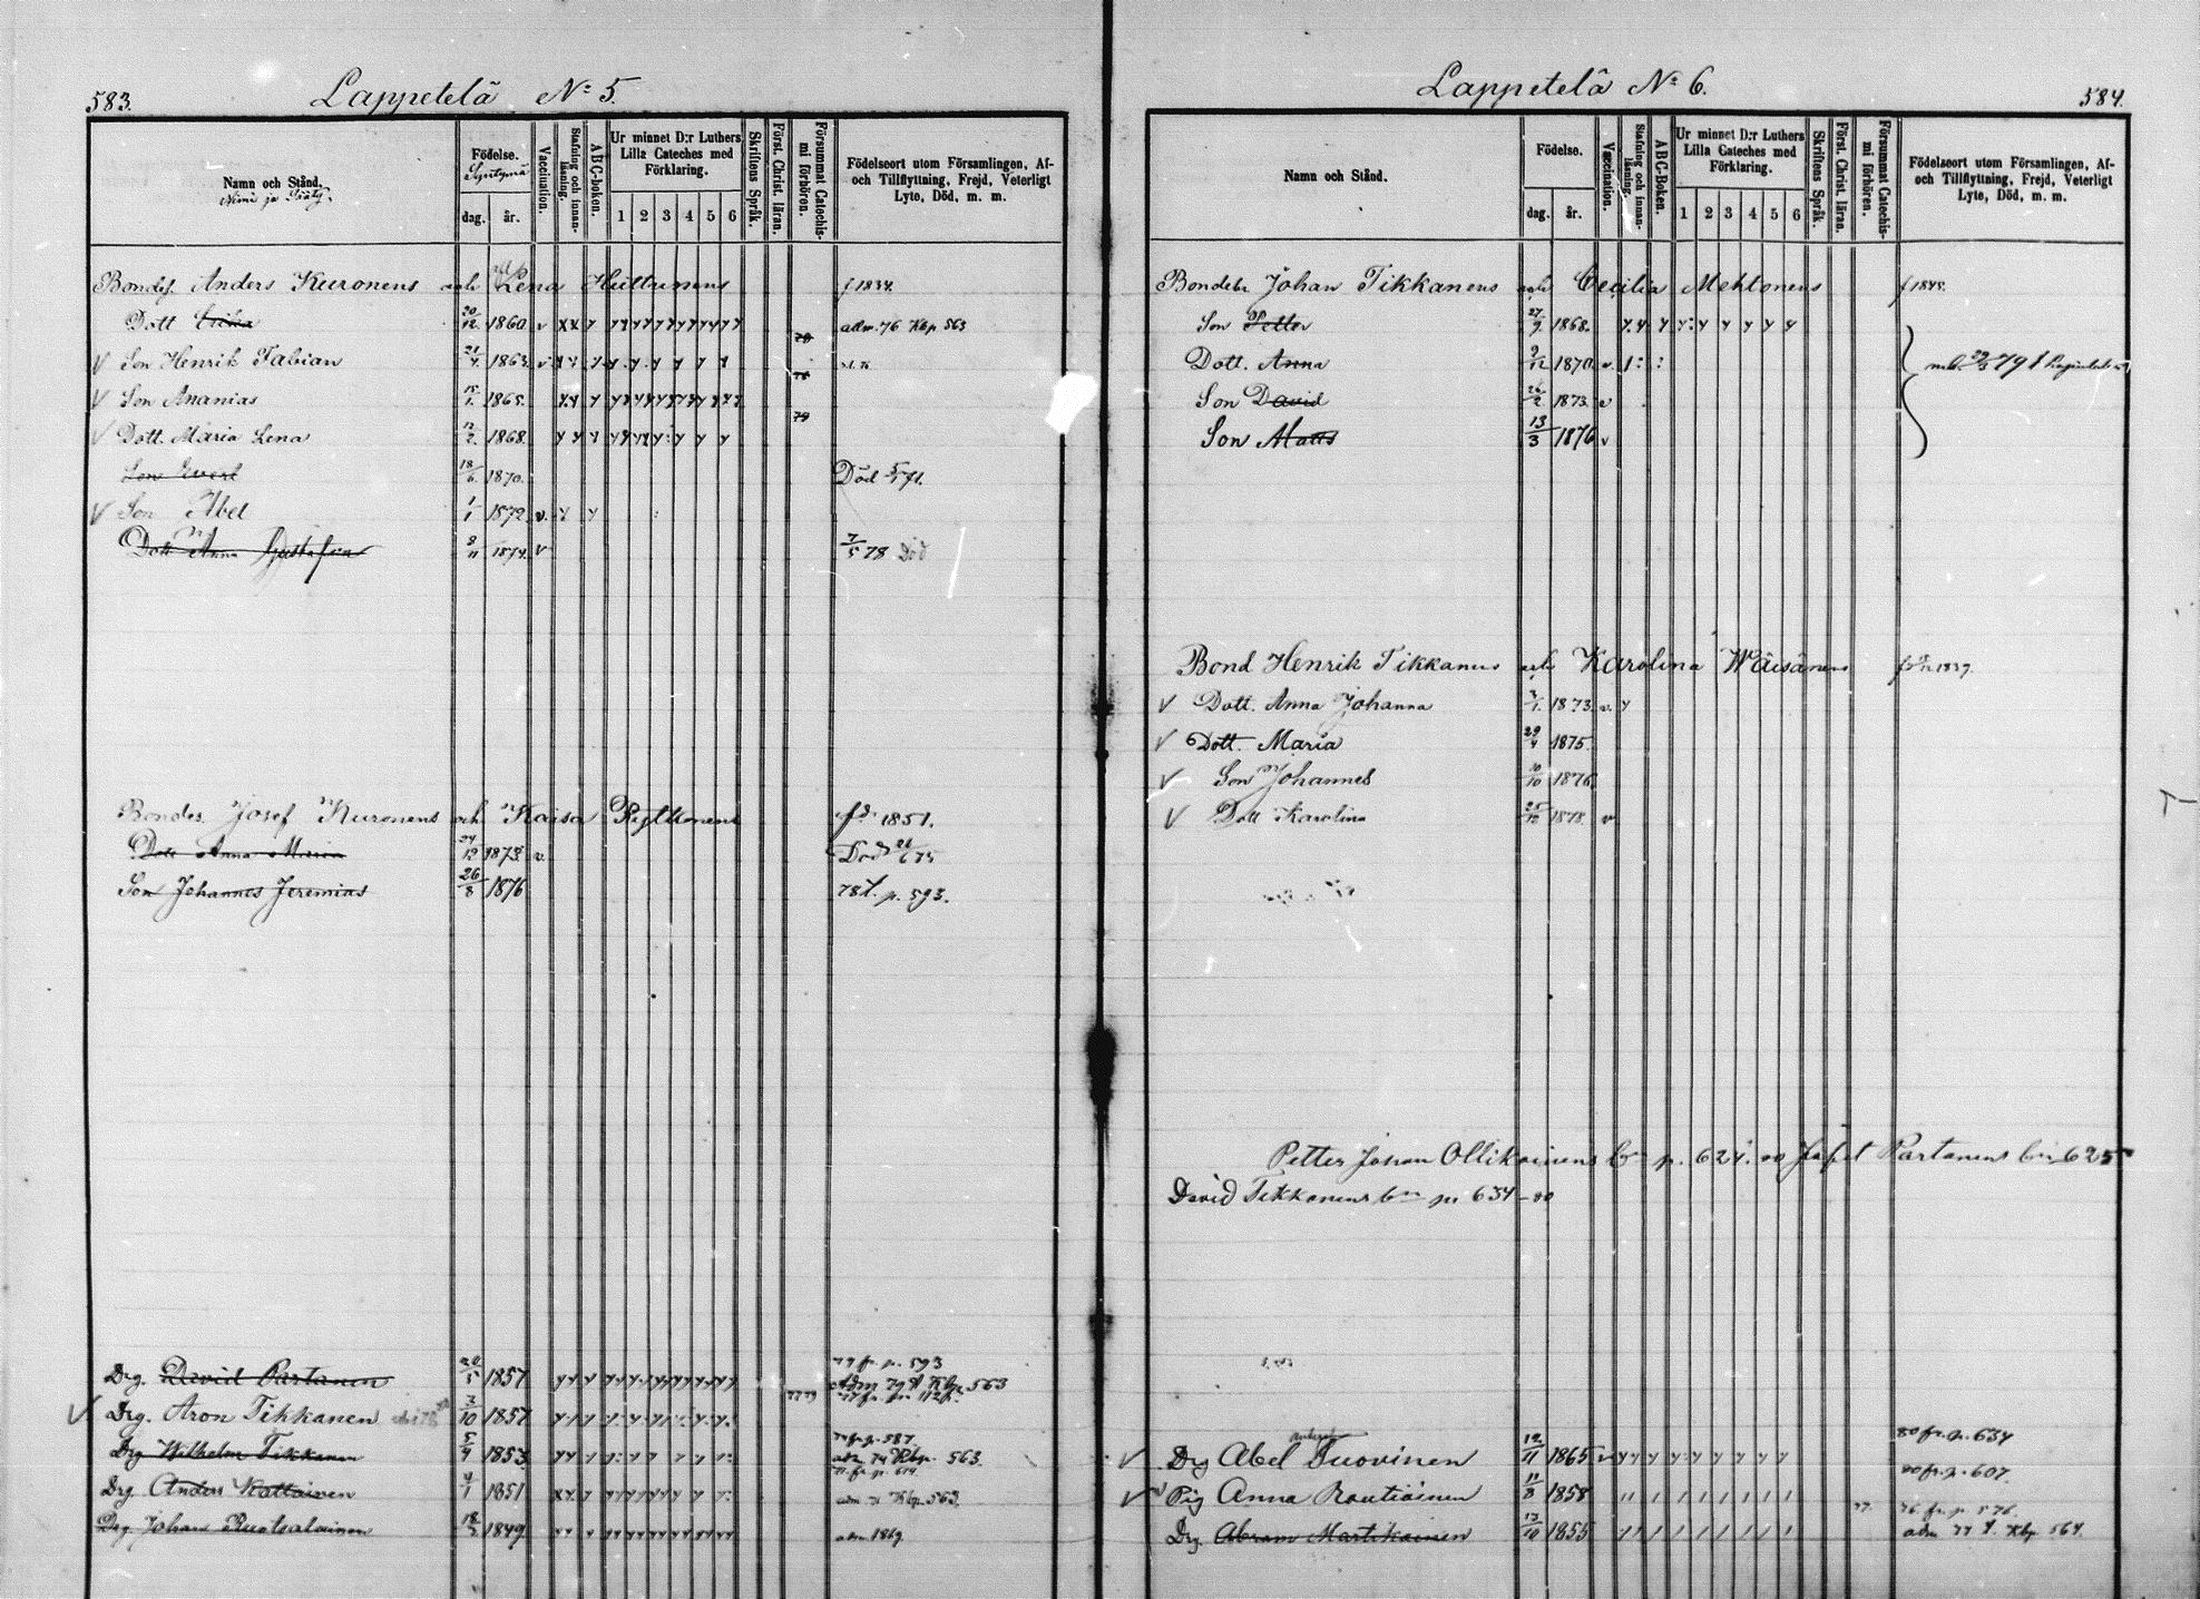 583.
Lappetelä No 5.
Namn och Stånd.
Nimi ja Sääty.
Födelse.
Syntymä
dag. år.
Vaccination.
Stafning och innan-läsning.
ABC-boken.
Ur minnet D:r Luthers Lilla Cateches med Förklaring.
1 2 3 4 5 6
Skriftens Språk.
Först. Christ. läran.
Försummat Catechis-mi förhören.
Födelseort utom Församlingen, Af-
och Tillflyttning, Frejd, Veterligt
Lyte, Död, m. m.
Bondes. Anders Kuronens och Lena Huttunens f 1834.
Dott Erika 20/12 1860 v adm. 76 Kbp 563
v Son Henrik Fabian 21/4 1863 v
v Son Ananias 15/1 1865. 79
v Dott. Maria Lena 12/2 1868.
Son Evert 18/6 1870. Död 5/5 71.
v Son Abel 1/1 1872 v.
Dott Anna Gustafva 8/11 1874. v 7/5 78 Död
Bondes. Josef Kuronens och Kaisa Pylkkönens fd. 1851.
Dott Anna Maria 24/12 1873 v. Död 6 75
Son Johannes Jeremias 26/8 1876 78 t. p. 593.
79 fr. p. 593
Drg. David Partanen 1857 Adm 79 t Kbp 563
77 fr. p. 112
v Drg. Aron Tikkanen 3/10 1857 77 79
74 fr. p. 587
Drg Wilhelm Tikkanen 5/4 1853 adm 74 Kbp. 563.
71 fr. p. 614
Drg. Anders Kottainen 4/1 1851 adm 71 Kbp. 563.
Drg. Johan Ruotsalainen 18/3 1849 adm 1869
Lappetelä No 6.
584.
Namn och Stånd.
Födelse.
dag. år.
Vaccination.
Stafning och innan-läsning.
ABC-Boken.
Ur minnet D:r Luthers Lilla Cateches med Förklaring.
1 2 3 4 5 6
Skriftens Språk.
Först. Christ. läran.
Försummat Catechis-mi förhören.
Födelseort utom Församlingen, Af-
och Tillflyttning, Frejd, Veterligt
Lyte, Död, m. m.
Bondebr Johan Tikkanens och Cecilia Mehtonens f 1848.
Son Petter 27/9 1868.
Dott. Anna 9/12 1870 v. 79 t
Son David 26/2 1873 v
Son Matts 13/3 1876 v
Bond Henrik Tikkanens och Karolina Wäisänens 1837.
v Dott. Anna Johanna 1873 v.
v Dott. Maria 29/4 1875
v Son Johannes 10/10 1876
v Dott Karolina 25/12 1878. v
Petter Johan Ollikainens bn p. 624. 80 Jafet Partanens bn 625
David Tikkanens bn pn 634 - 80
80 fr. p. 634
v Drg Abel Tuovinen 12/11 1865 v
80 fr. p. 607
v Pig Anna Rautiainen 11/8 1858
76 fr. p. 576
Drg. Abram Martikainen 13/10 1855 77. adm 77 t. Kbp. 564.